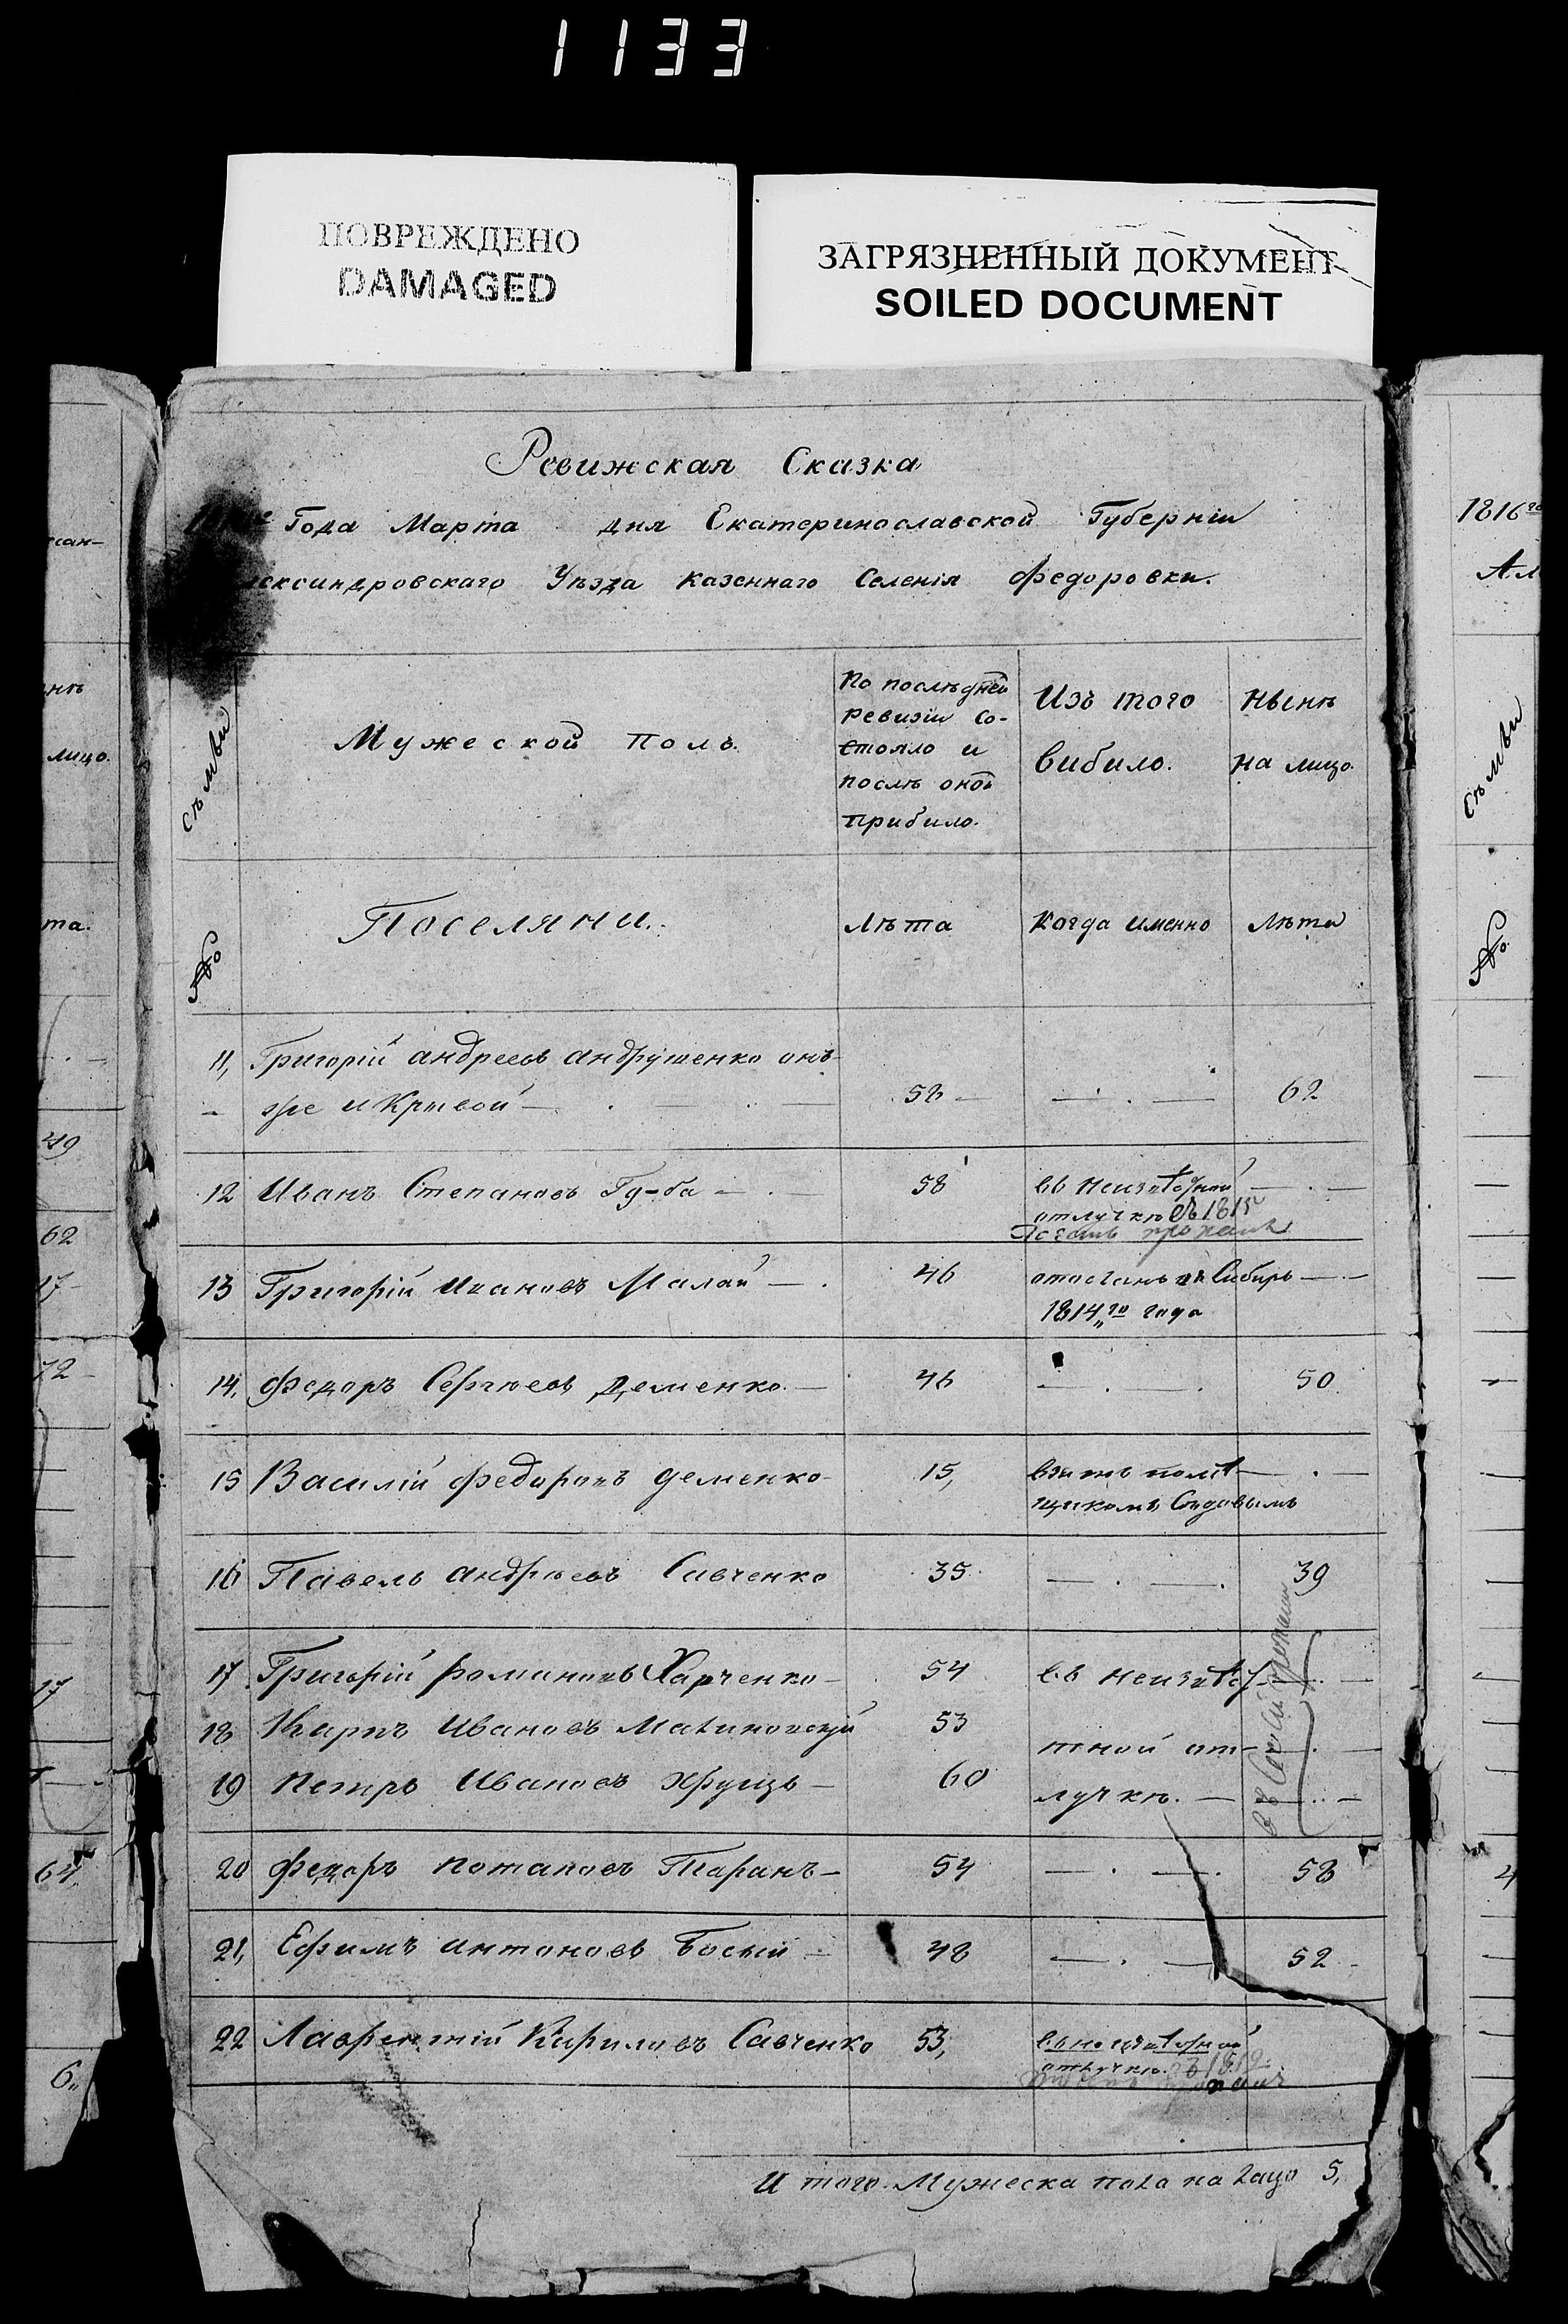 1133
ПОВРЕЖДЕНО
DAMAGED
ЗАГРЯЗНЕННЫЙ ДОКУМЕНТ
SOILED DOCUMENT
Ревижская Сказка
Года Марта дня Екатеринославской Губерніи
ександровскаго Уѣзда казеннаго Селенія Федоровки.
№ Съмьи
Мужеской полъ.
По послѣдней
ревизіи со-
стояло и
послѣ оной
прибило.
Изъ того
вибило.
Нынѣ
на лицо.
Поселяни.
Лѣта
Когда именно
Лѣта
11, Григорій Андреевъ Андрушенко онъ
же и Кривой — 58 — 62
12 Иванъ Степановъ Гу-ба — 58 въ неизвѣстной
отлучкѣ съ 1815
13 Григорій Ивановъ Малай — 46 отосланъ въ Сибирь —
1814,,го года
14, Федоръ Сергѣевъ Деменко. — 46 — 50
15 Василій Федоровъ Деменко 15, взятъ помѣ-
щикомъ
16 Павелъ Андрѣевъ Савченко 35 — 39
17 Григорій Романовъ Харченко — 54 въ неизвѣс-
18 Карпъ Ивановъ Малиновскій 53 тной от-
19 Петръ Ивановъ Хрущъ — 60 лучкѣ. —
20 Федоръ Потаповъ Таранъ — 54 — 58
21, Ефимъ Антоновъ Босый — 48 — 52
22 Лаврентій Кириловъ Савченко 53, въ неизвѣстной
отлучкѣ.
И того Мужеска пола на лацо 5,
сан-
нѣ
лицо.
та.
49
62
17
72
17
64
6,,
1816го
Ал
Съмьи
№
4